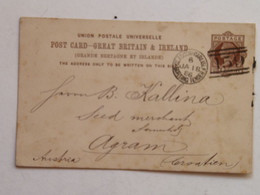 UNION POSTALE UNIVERSELLE
POST CARD—GREAT BRITAIN & IRELAND
(GRANDE BRETAGNE ET IRLANDE)
THE ADDRESS ONLY TO BE WRITTEN ON THIS SIDE
POSTAGE
Herrn B. Kallina
Seed merchant
Agram
Austria (Croatien)